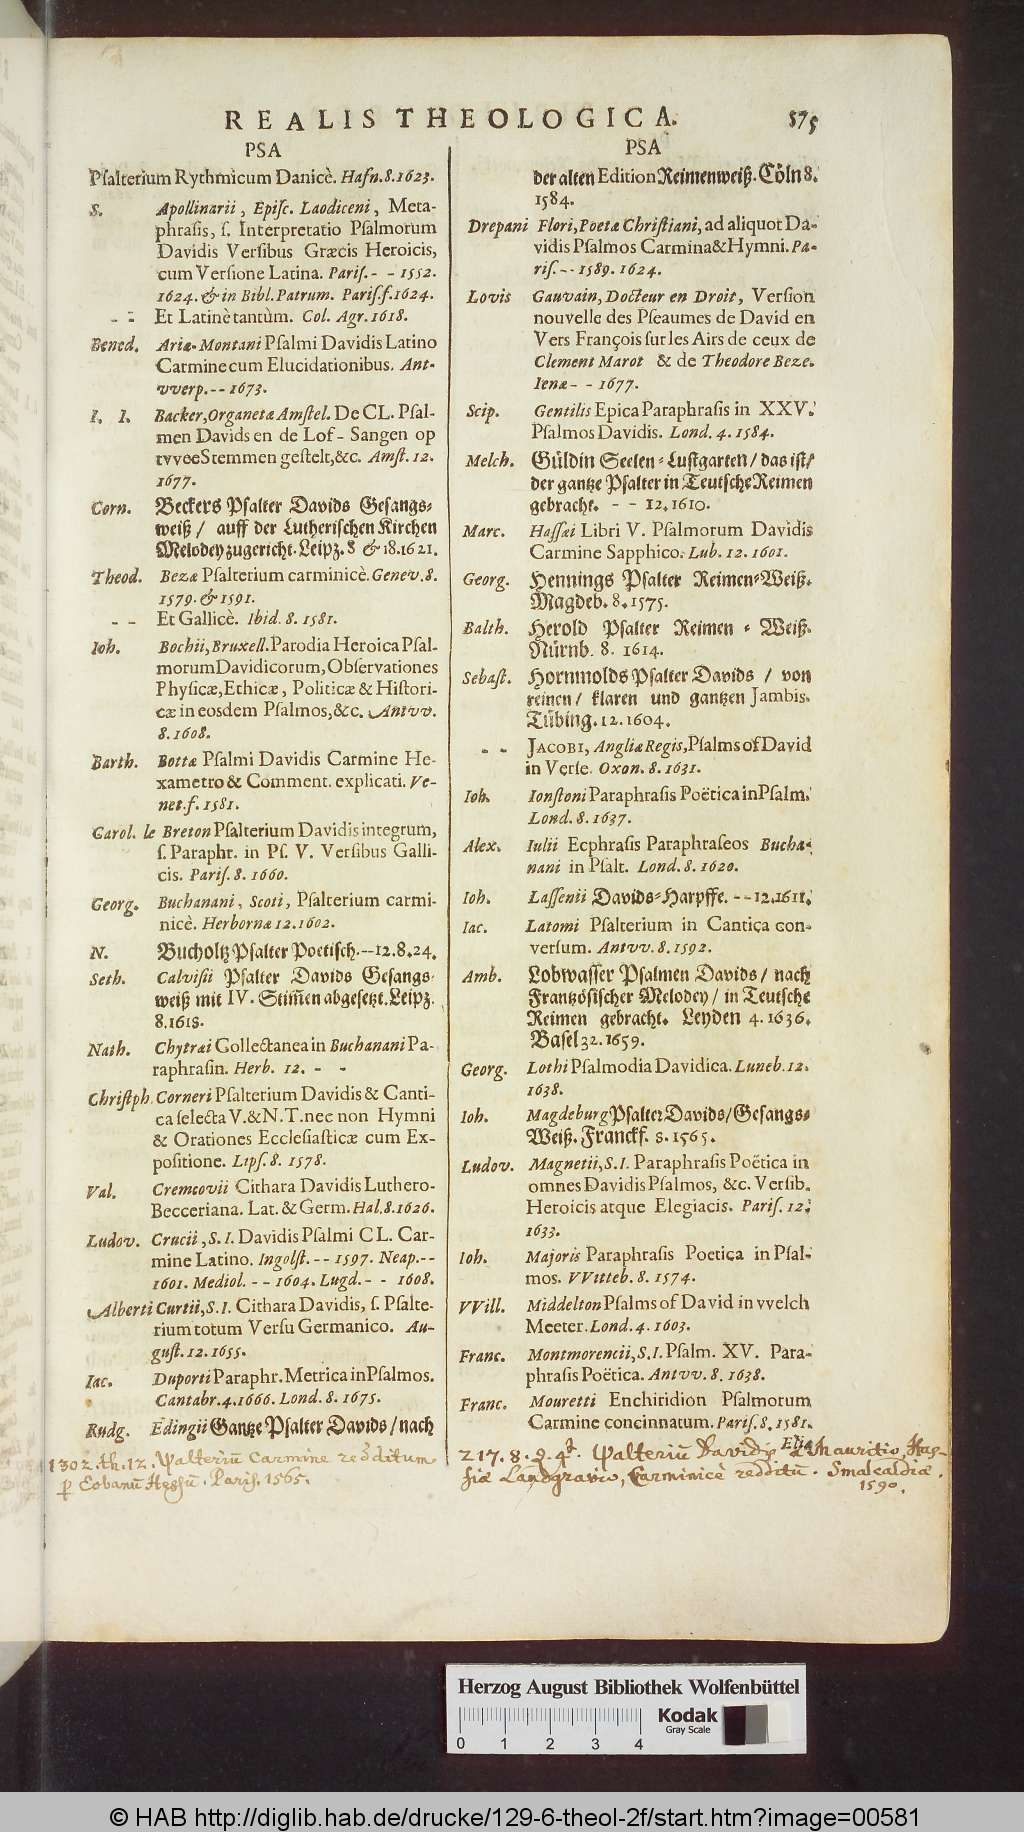 REALIS THEOLOGICA. 575
PSA
Pſalterium Rythmicum Danicè. Hafn. 8. 1623.
S. Apollinarii, Epiſc. Laodiceni, Meta-
phraſis, ſ. Interpretatio Pſalmorum
Davidis Verſibus Græcis Heroicis,
cum Verſione Latina. Pariſ. - - 1552.
1624. & in Bibl. Patrum. Pariſ. f. 1624.
- - Et Latinè tantùm. Col. Agr. 1618.
Bened. Ariæ-Montani Pſalmi Davidis Latino
Carmine cum Elucidationibus. Ant-
vverp. - - 1673.
I. I. Backer, Organetæ Amſtel. De CL. Pſal-
men Davids en de Lof-Sangen op
tvvee Stemmen geſtelt, &c. Amſt. 12.
1677.
Corn. Beckers Pſalter Davids Geſangs-
weiß / auff der Lutheriſchen Kirchen
Melodey zugericht. Leipz. 8 & 18. 1621.
Theod. Bezæ Pſalterium carminicè. Genev. 8.
1579. & 1591.
- - Et Gallicè. Ibid. 8. 1581.
Ioh. Bochii, Bruxell. Parodia Heroica Pſal-
morum Davidicorum, Obſervationes
Phyſicæ, Ethicæ, Politicæ & Hiſtori-
cæ in eosdem Pſalmos, &c. Antvv.
8. 1608.
Barth. Bottæ Pſalmi Davidis Carmine He-
xametro & Comment. explicati. Ve-
net. f. 1581.
Carol. le Breton Pſalterium Davidis integrum,
ſ. Paraphr. in Pſ. V. Verſibus Galli-
cis. Pariſ. 8. 1660.
Georg. Buchanani, Scoti, Pſalterium carmi-
nicè. Herbornæ 12. 1602.
N. Bucholtz Pſalter Poetiſch. - - 12. 8. 24.
Seth. Calviſii Pſalter Davids Geſangs-
weiß mit IV. Stim̃en abgeſetzt. Leipz.
8. 1618.
Nath. Chytræi Collectanea in Buchanani Pa-
raphraſin. Herb. 12. - -
Chriſtph. Corneri Pſalterium Davidis & Canti-
ca ſelecta V. & N. T. nec non Hymni
& Orationes Eccleſiaſticæ cum Ex-
poſitione. Lipſ. 8. 1578.
Val. Cremcovii Cithara Davidis Luthero-
Becceriana. Lat. & Germ. Hal. 8. 1626.
Ludov. Crucii, S. I. Davidis Pſalmi CL. Car-
mine Latino. Ingolſt. - - 1597. Neap. - -
1601. Mediol. - - 1604. Lugd. - - 1608.
Alberti Curtii, S. I. Cithara Davidis, ſ. Pſalte-
rium totum Verſu Germanico. Au-
guſt. 12. 1655.
Iac. Duporti Paraphr. Metrica in Pſalmos.
Cantabr. 4. 1666. Lond. 8. 1675.
Rudg. Edingii Gantze Pſalter Davids / nach
1302. th. 12. Psalteriū Carmine redditum
p Eobanū Hessū. Paris. 1565.
PSA
der alten Edition Reimenweiß. Cöln 8.
1584.
Drepani Flori, Poetæ Chriſtiani, ad aliquot Da-
vidis Pſalmos Carmina & Hymni. Pa-
riſ. - - 1589. 1624.
Lovis Gauvain, Docteur en Droit, Verſion
nouvelle des Pſeaumes de David en
Vers François ſur les Airs de ceux de
Clement Marot & de Theodore Beze.
Ienæ - - 1677.
Scip. Gentilis Epica Paraphraſis in XXV.
Pſalmos Davidis. Lond. 4. 1584.
Melch. Güldin Seelen-Luſtgarten / das iſt /
der gantze Pſalter in Teutſche Reimen
gebracht. - - 12. 1610.
Marc. Haſſæi Libri V. Pſalmorum Davidis
Carmine Sapphico. Lub. 12. 1601.
Georg. Hennings Pſalter Reimen-Weiß.
Magdeb. 8. 1575.
Balth. Herold Pſalter Reimen-Weiß.
Nürnb. 8. 1614.
Sebaſt. Hornmolds Pſalter Davids / von
reinen / klaren und gantzen Jambis.
Tübing. 12. 1604.
- - JACOBI, Angliæ Regis, Pſalms of David
in Verſe. Oxon. 8. 1631.
Ioh. Ionſtoni Paraphraſis Poëtica in Pſalm.
Lond. 8. 1637.
Alex. Iulii Ecphraſis Paraphraſeos Bucha-
nani in Pſalt. Lond. 8. 1620.
Ioh. Laſſenii Davids-Harpffe. - - 12. 1611.
Iac. Latomi Pſalterium in Cantica con-
verſum. Antvv. 8. 1592.
Amb. Lobwaſſer Pſalmen Davids / nach
Frantzöſiſcher Melodey / in Teutſche
Reimen gebracht. Leyden 4. 1636.
Baſel 32. 1659.
Georg. Lothi Pſalmodia Davidica. Luneb. 12.
1638.
Ioh. Magdeburg Pſalter Davids / Geſangs-
Weiß. Franckf. 8. 1565.
Ludov. Magnetii, S. I. Paraphraſis Poëtica in
omnes Davidis Pſalmos, &c. Verſib.
Heroicis atque Elegiacis. Pariſ. 12.
1633.
Ioh. Majoris Paraphraſis Poetica in Pſal-
mos. VVitteb. 8. 1574.
VVill. Middelton Pſalms of David in vvelch
Meeter. Lond. 4. 1603.
Franc. Montmorencii, S. I. Pſalm. XV. Para-
phraſis Poëtica. Antvv. 8. 1638.
Franc. Mouretti Enchiridion Pſalmorum
Carmine concinnatum. Pariſ. 8. 1581.
217. 8. Q. 4t. Psalteriū Davidis à Mauritio, Has-
siæ Landgravio, Carminicè redditū. Smalcaldiæ.
1590.
Herzog August Bibliothek Wolfenbüttel
Kodak
Gray Scale
0 1 2 3 4
© HAB http://diglib.hab.de/drucke/129-6-theol-2f/start.htm?image=00581